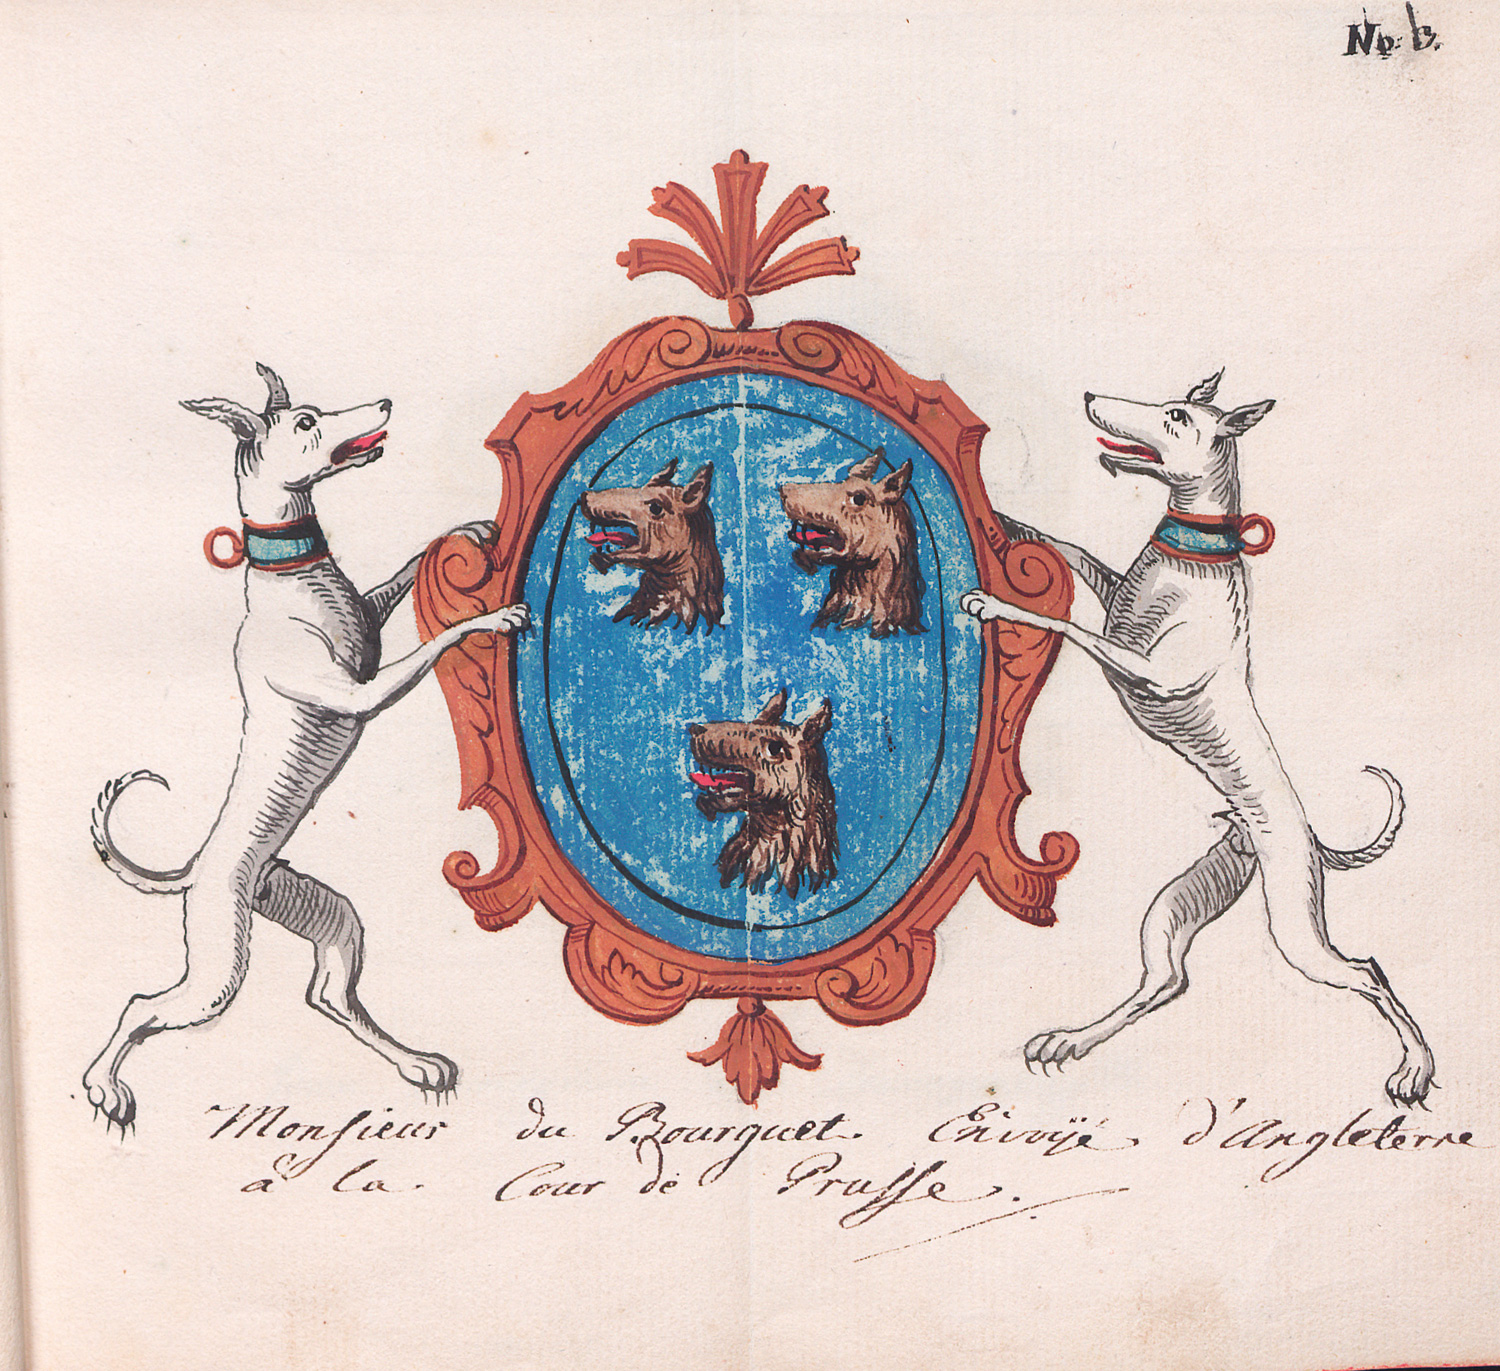 No. B.
Monsieur du Bourguet. Envoÿé d'Angleterre
à la Cour de Prusse.